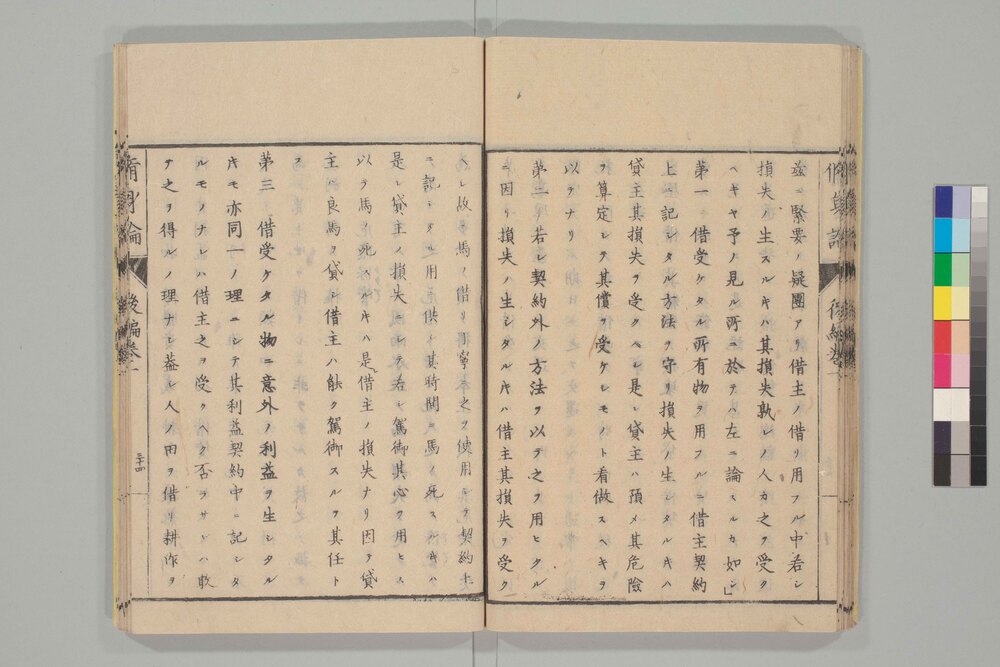 茲ニ緊要ノ疑團アリ借主ノ借リ用フル中若シ
損失ノ生スルキハ其損失孰レノ人カ之ヲ受ク
ヘキヤ予ノ見ル所ニ於テハ左ニ論スルカ如シ」
第一 借受ケタル所有物ヲ用フルニ借主契約
上ニ記シタル方法ヲ守リ損失ノ生シタルキハ
貸主其損失ヲ受クヘシ是レ貸主ハ預メ其危險
ヲ算定シテ其償ヲ受ケシモノト看做スヘキヲ
以テナリ
第二 若シ契約外ノ方法ヲ以テ之ヲ用ヒタル
ニ因リ損失ノ生シタルキハ借主其損失ヲ受ク
ヘシ故ニ馬ノ借リ丁寧ニ之ヲ使用シテ契約上
ニ記シタル用ニ供シ其時間ニ馬ノ死スルキハ
是レ貸主ノ損失ニシテ若シ駕御其心ヲ用ヒス
以テ馬ノ死スルキハ是借主ノ損失ナリ因テ貸
主ハ良馬ヲ貸シ借主ハ能ク駕御スルヲ其任ト
ス
第三 借受ケタル物ニ意外ノ利益ヲ生シタル
キモ亦同一ノ理ニシテ其利益契約中ニ記シタ
ルモノナレハ借主之ヲ受クヘク否ラサレハ敢
テ之ヲ得ルノ理ナシ蓋シ人ノ田ヲ借リ耕作ヲ
脩身論 後編巻一
三十四